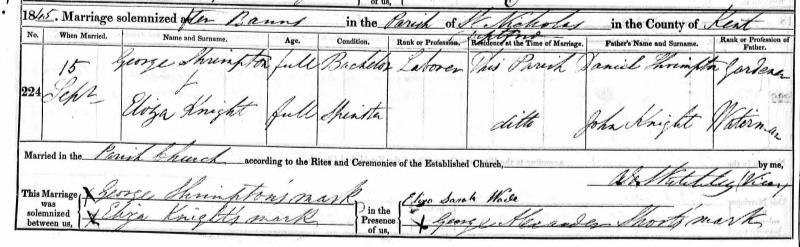 1845. Marriage solemnized after Banns in the Parish of St Nicholas in the County of Kent
No. When Married. Name and Surname. Age. Condition. Rank or Profession. Residence at the Time of Marriage. Father's Name and Surname. Rank or Profession of Father.
224 15 Sept George Shrimpton full Bachelor Laborer This Parish Daniel Shrimpton Gardener
&
Eliza Knight full Spinster ditto John Knight Waterman
Married in the Parish Church according to the Rites and Ceremonies of the Established Church, by me,
Vicar
This Marriage was solemnized between us,
X George Shrimpton's mark
X Eliza Knight's mark
in the Presence of us,
Eliza Sarah Wade
X George Alexander Short's mark